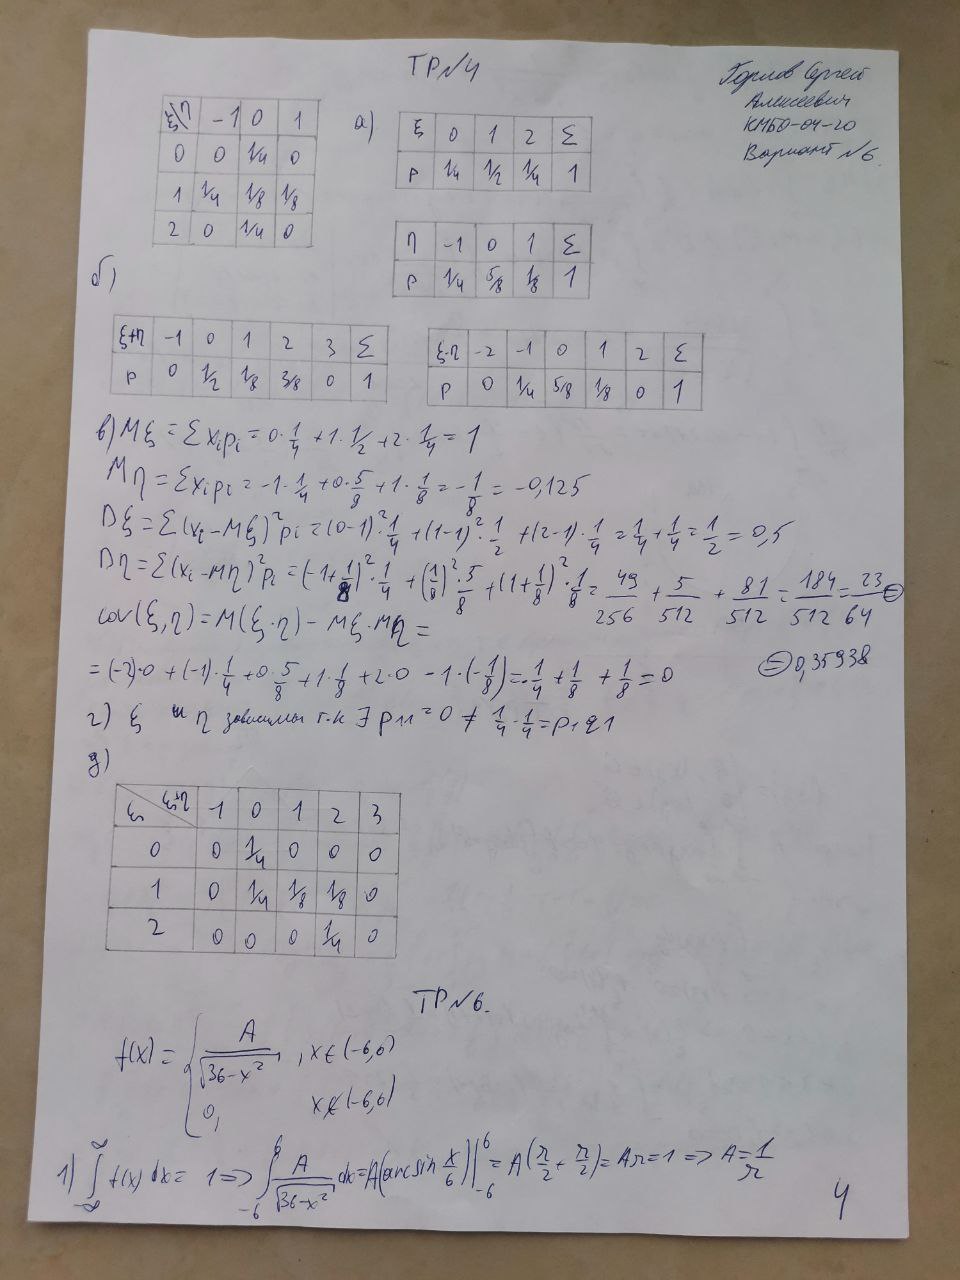 ТР№4
Горлов Сергей
Алексеевич
КМБО-04-20
Вариант №6.
ξ/η -1 0 1
0 0 1/4 0
1 1/4 1/8 1/8
2 0 1/4 0
а)
ξ 0 1 2 Σ
P 1/4 1/2 1/4 1
η -1 0 1 Σ
P 1/4 5/8 1/8 1
б)
ξ+η -1 0 1 2 3 Σ
P 0 1/2 1/8 3/8 0 1
ξ·η -2 -1 0 1 2 Σ
P 0 1/4 5/8 1/8 0 1
в) Mξ = Σxipi = 0·1/4 + 1·1/2 + 2·1/4 = 1
Mη = Σxipi = -1·1/4 + 0·5/8 + 1·1/8 = -1/8 = -0,125
Dξ = Σ(xi-Mξ)²pi = (0-1)²·1/4 + (1-1)²·1/2 + (2-1)·1/4 = 1/4 + 1/4 = 1/2 = 0,5
Dη = Σ(xi-Mη)²pi = (-1+1/8)²·1/4 + (1/8)²·5/8 + (1+1/8)²·1/8 = 49/256 + 5/512 + 81/512 = 184/512 = 23/64 =
= 0,35938
cov(ξ,η) = M(ξ·η) - Mξ·Mη =
= (-2)·0 + (-1)·1/4 + 0·5/8 + 1·1/8 + 2·0 - 1·(-1/8) = -1/4 + 1/8 + 1/8 = 0
г) ξ и η зависимы т.к ∃ p11 = 0 ≠ 1/4·1/4 = p1q1
д)
ξ ξ+η -1 0 1 2 3
0 0 1/4 0 0 0
1 0 1/4 1/8 1/8 0
2 0 0 0 1/4 0
ТР№6.
f(x) = { A/√(36-x²), x∈(-6,6)
0, x∉(-6,6)
1) ∫_{-∞}^{∞} f(x) dx = 1 => ∫_{-6}^{6} A/√(36-x²) dx = A(arcsin x/6)|_{-6}^{6} = A(π/2 + π/2) = Aπ = 1 => A = 1/π
4